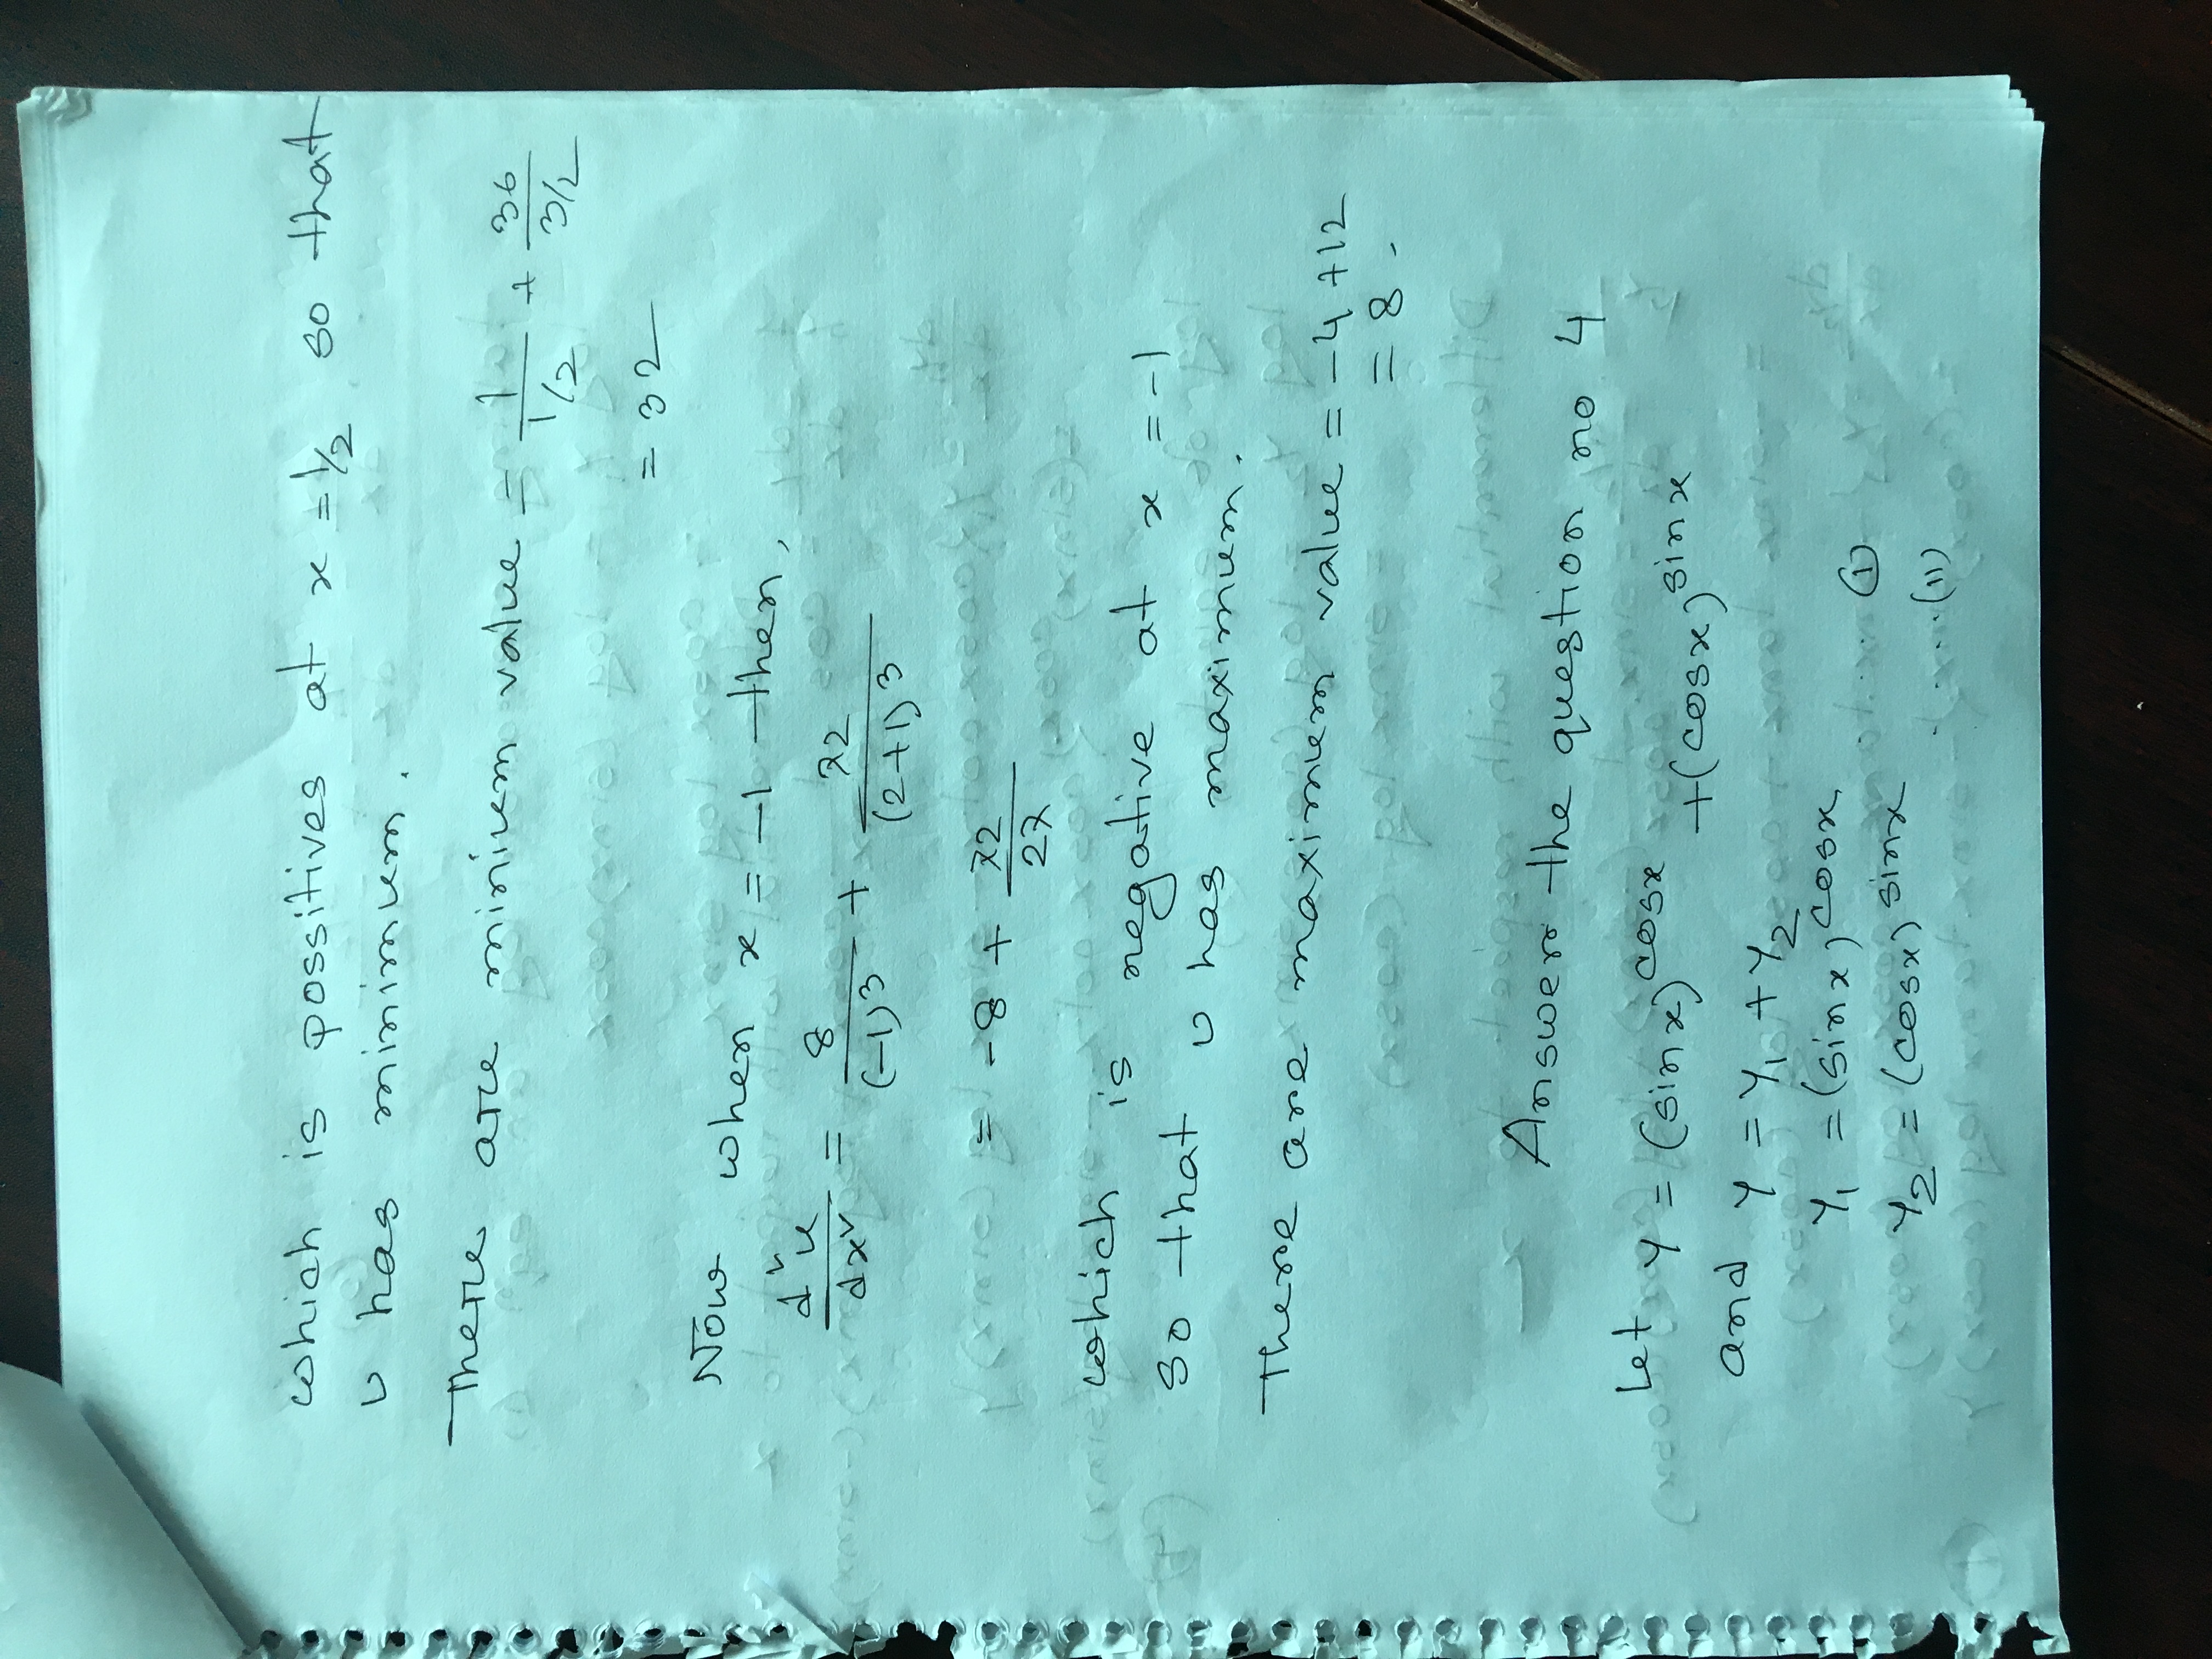 which is possitives at x = 1/2 so that
υ has minimum.
There are minium value = 1/(1/2) + 36/(3/2)
= 32
Now when x = -1 then,
d²u/dx² = 8/(-1)³ + 72/(2+1)³
= -8 + 72/27
which is negative at x = -1
so that υ has maximum.
There are maximum value = -4 +12
= 8.
Answer the question no 4
Let y = (sinx)^cosx +(cosx)^sinx
and y = y₁ + y₂
y₁ = (sinx)^cosx ...... (i)
y₂ = (cosx)^sinx ......(ii)